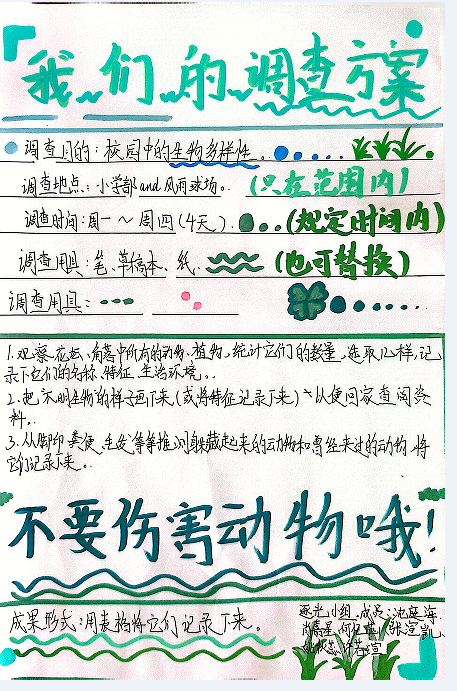 我们的调查方案
调查目的：校园中的生物多样性。
调查地点：小学部and风雨球场。（只在范围内）
调查时间：周一～周四（4天）.（规定时间内）
调查用具：笔、草稿本、纸.（也可替换）
调查用具：
1.观察花坛、角落中所有的动物、植物，统计它们的数量，选取12样，记
录下它们的名称、特征、生活环境。
2.把不明生物的样子画下来（或将特征记录下来）以便回家查阅资
料。
3.从脚印、粪便、毛发等等推测躲藏起来的动物和曾经来过的动物，将
它们记录下来。
不要伤害动物哦！
成果形式：用表格将它们记录下来。
逐光小组，成员：沈 海